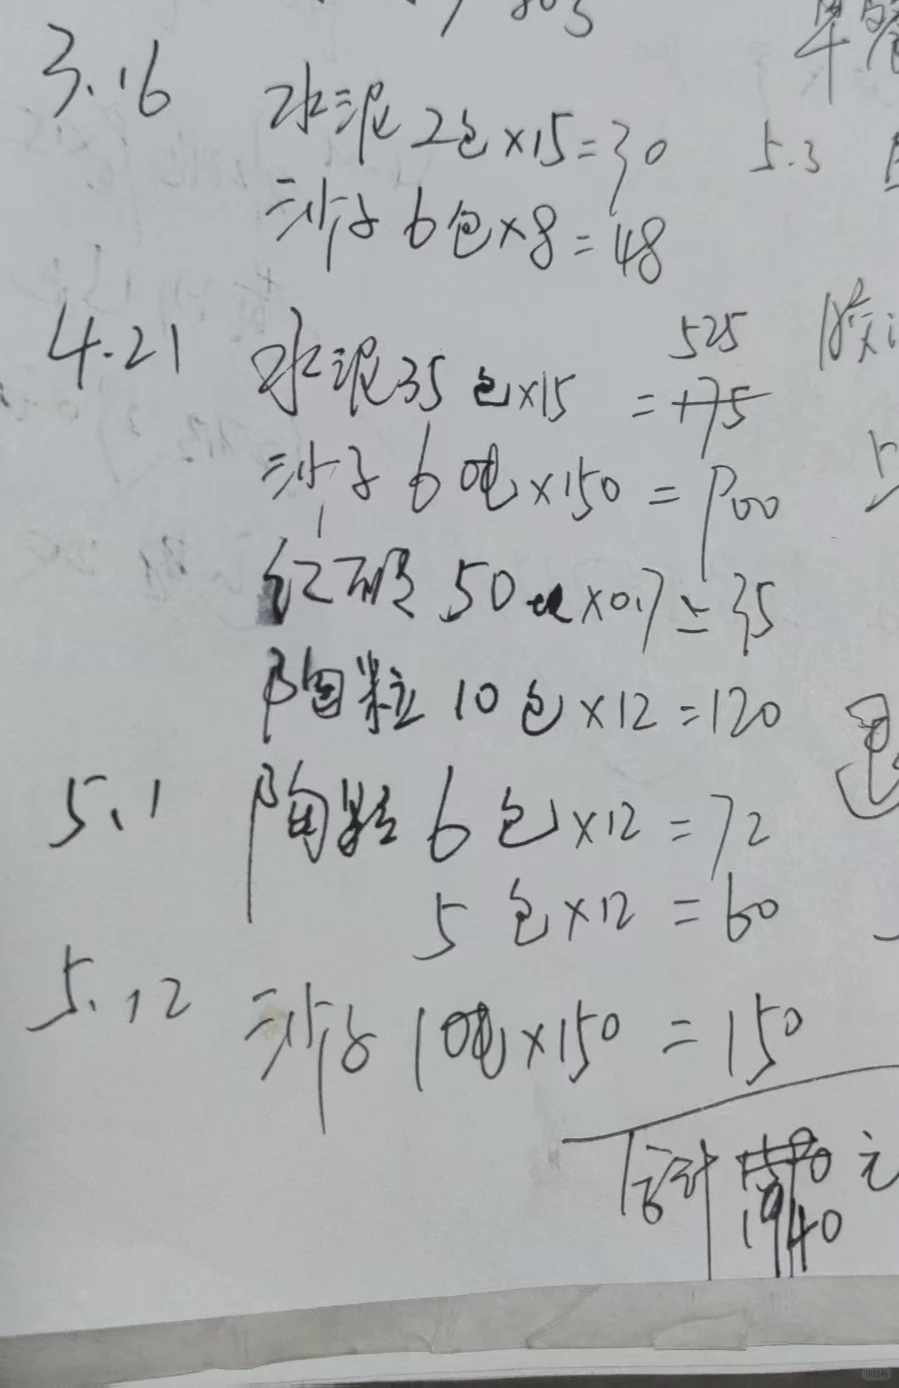 805
3.16 水泥 2包×15=30
沙子 6包×8=48
5.3
4.21 水泥35包×15 = 175
525
沙子 6吨×150 = 900
红砖 50块×0.7=35
陶粒 10包×12=120
5.1 陶粒 6包×12=72
5包×12=60
5.12 沙子 1吨×150 = 150
合计 元
1940